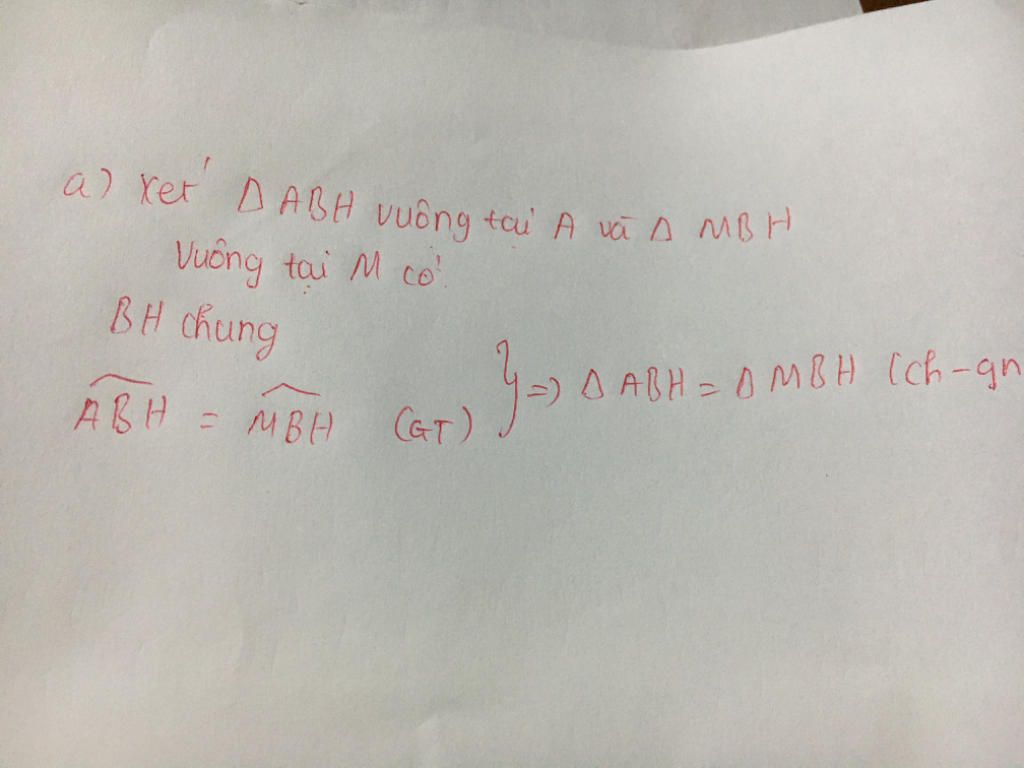 a) Xét Δ ABH vuông tại A và Δ MBH
Vuông tại M có
BH chung
ABH = MBH (GT) } => Δ ABH = Δ MBH (ch-gn